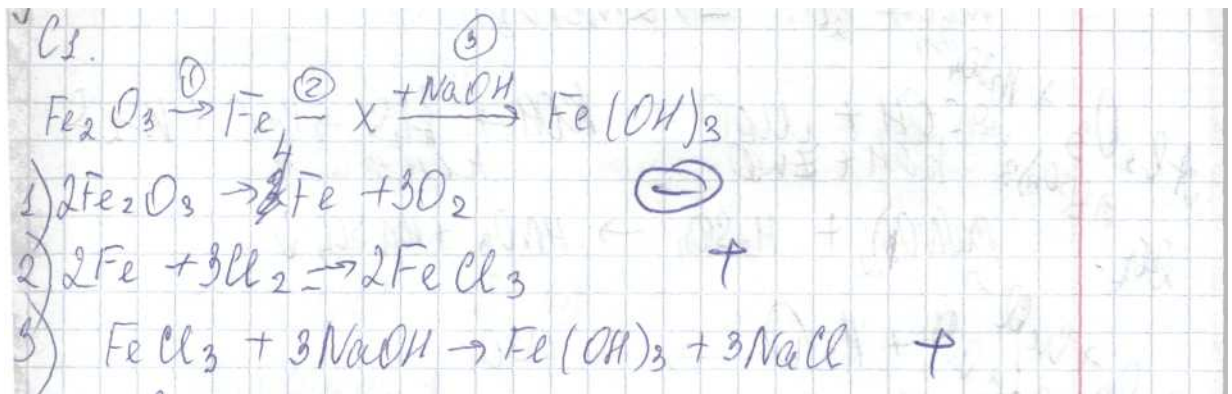 C1.
Fe₂O₃ →① Fe —② X →③ +NaOH Fe(OH)₃
1) 2Fe₂O₃ → 4Fe + 3O₂ −
2) 2Fe + 3Cl₂ → 2FeCl₃ +
3) FeCl₃ + 3NaOH → Fe(OH)₃ + 3NaCl +